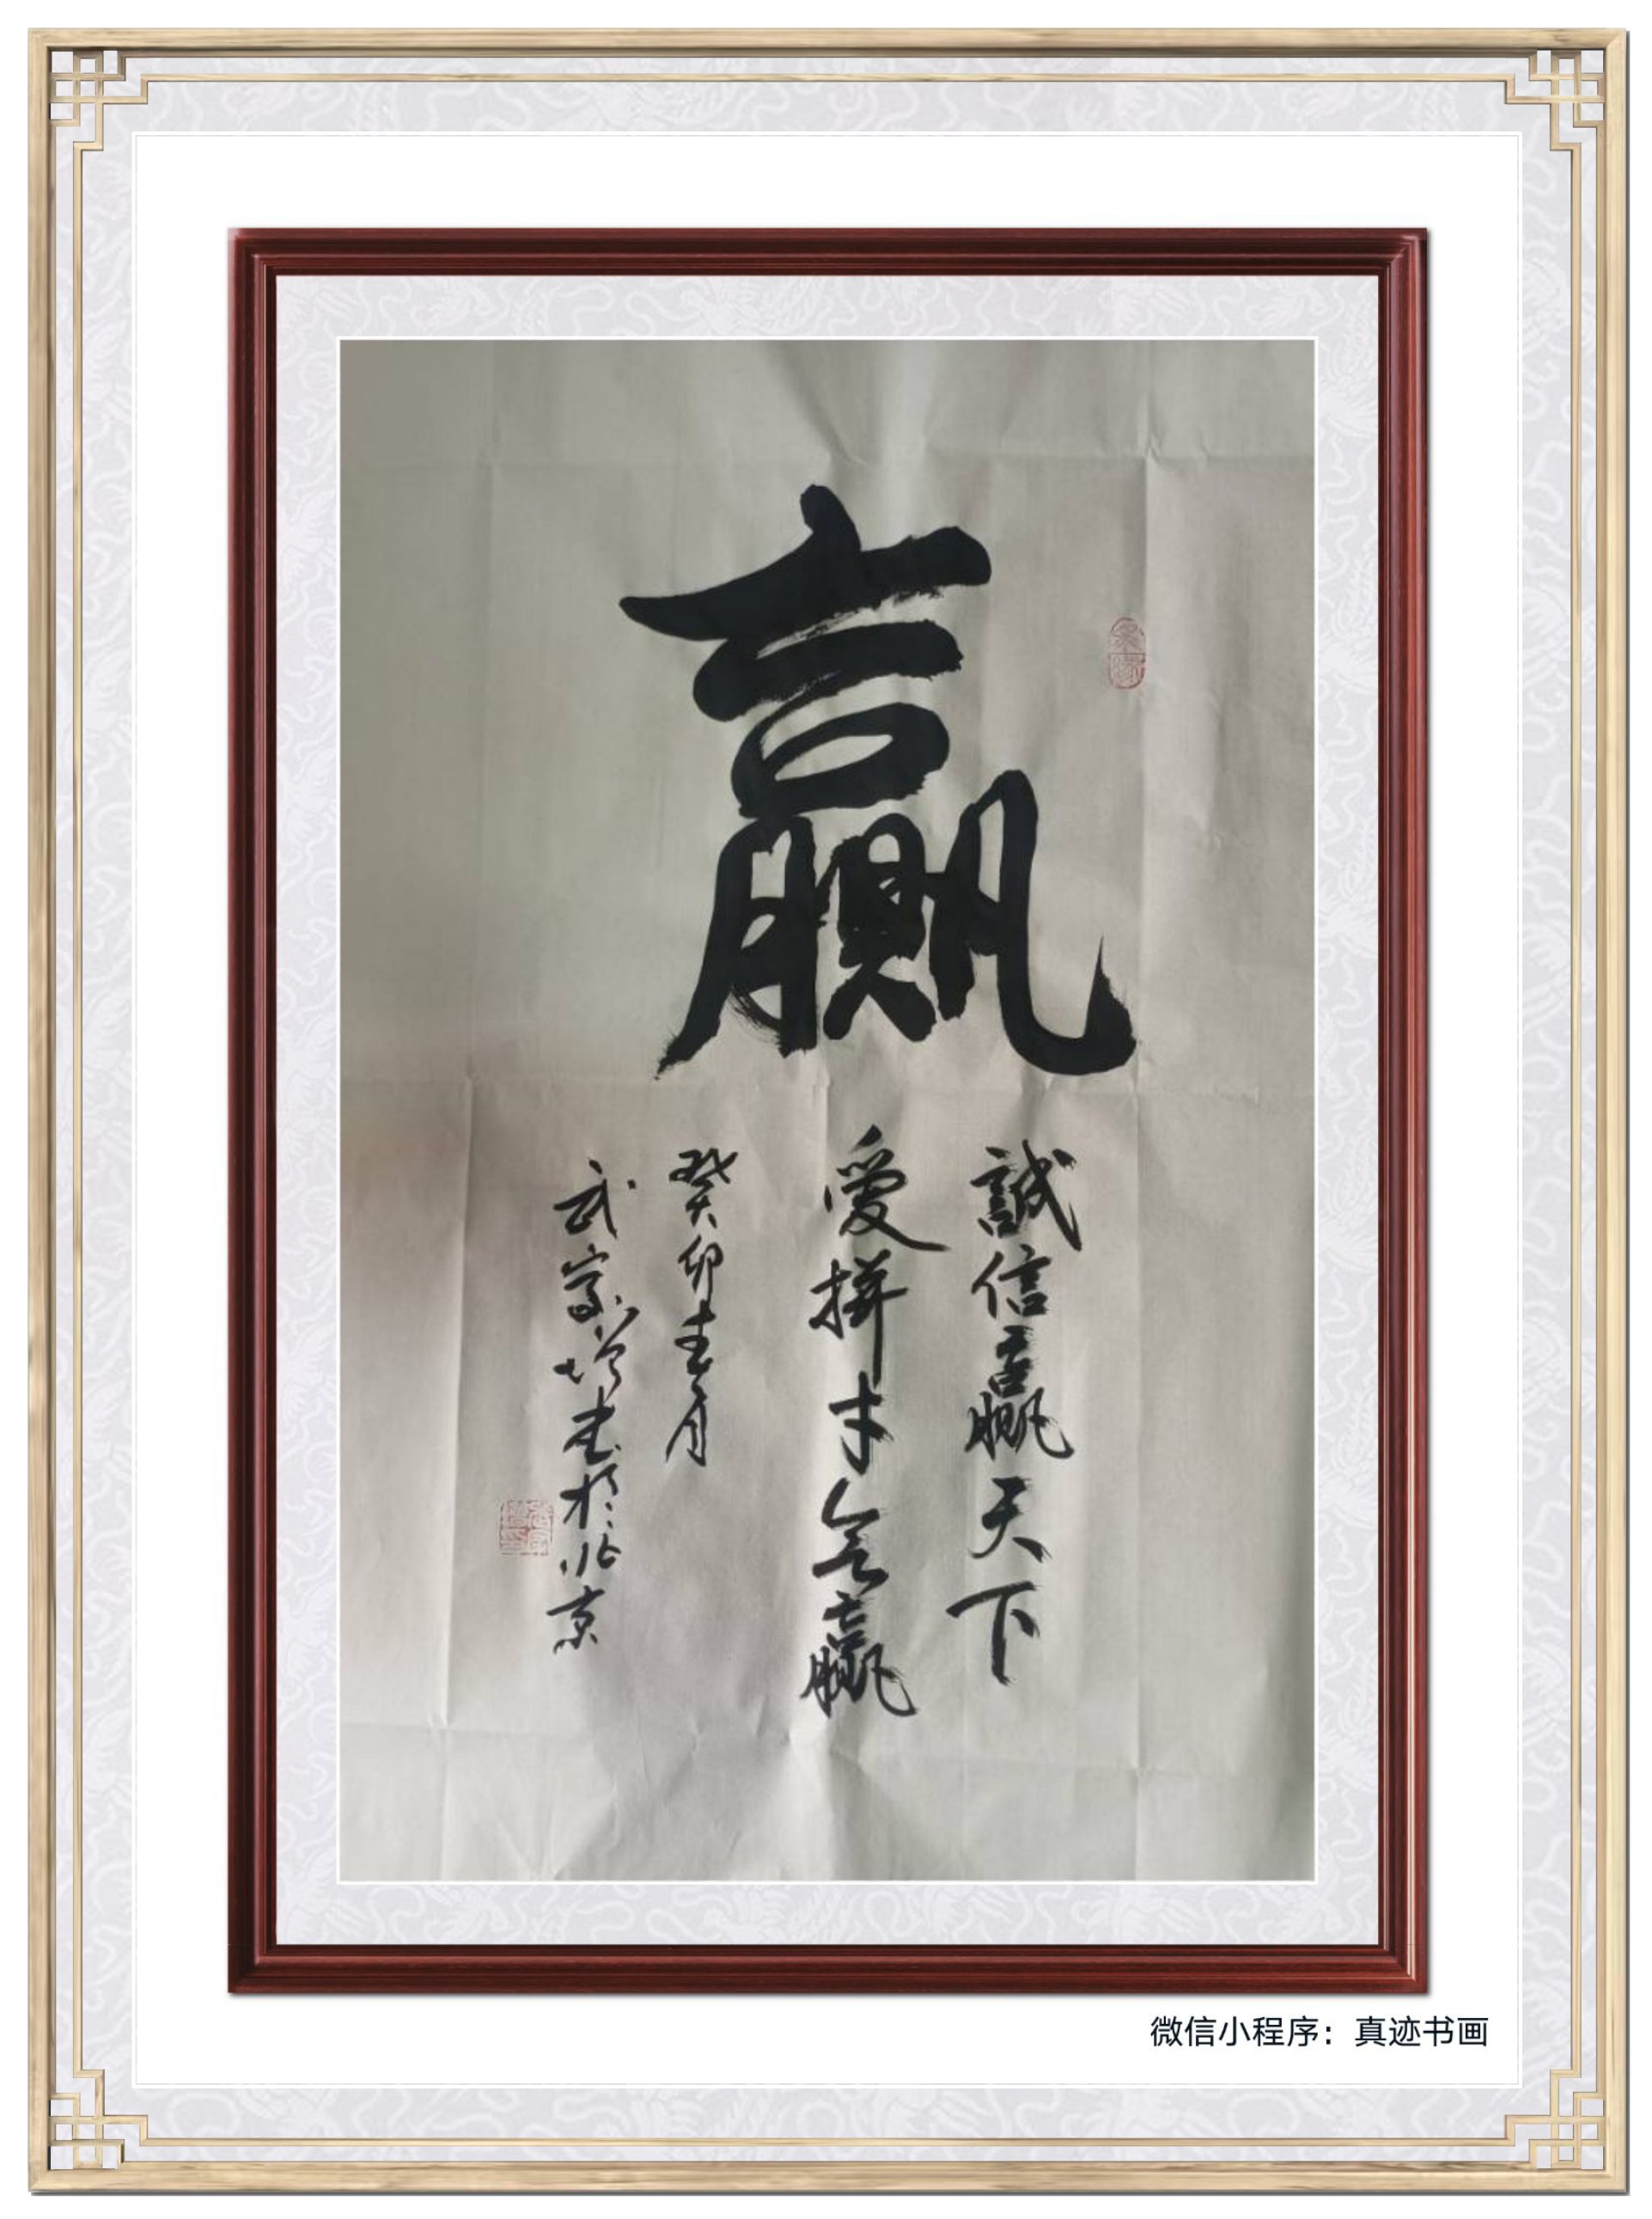 赢
誠信赢天下
愛拼才会赢
癸卯春月
武家增书於北京
微信小程序：真迹书画